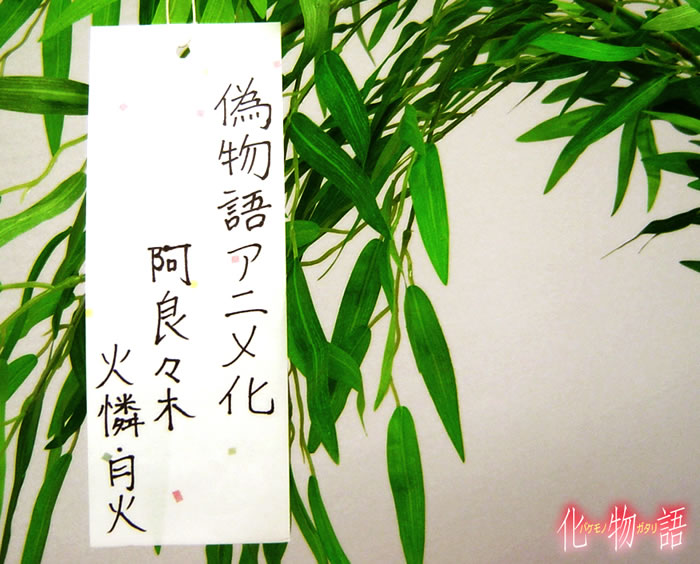 偽物語アニメ化
阿良々木
火憐・月火
化物語
バケモノガタリ